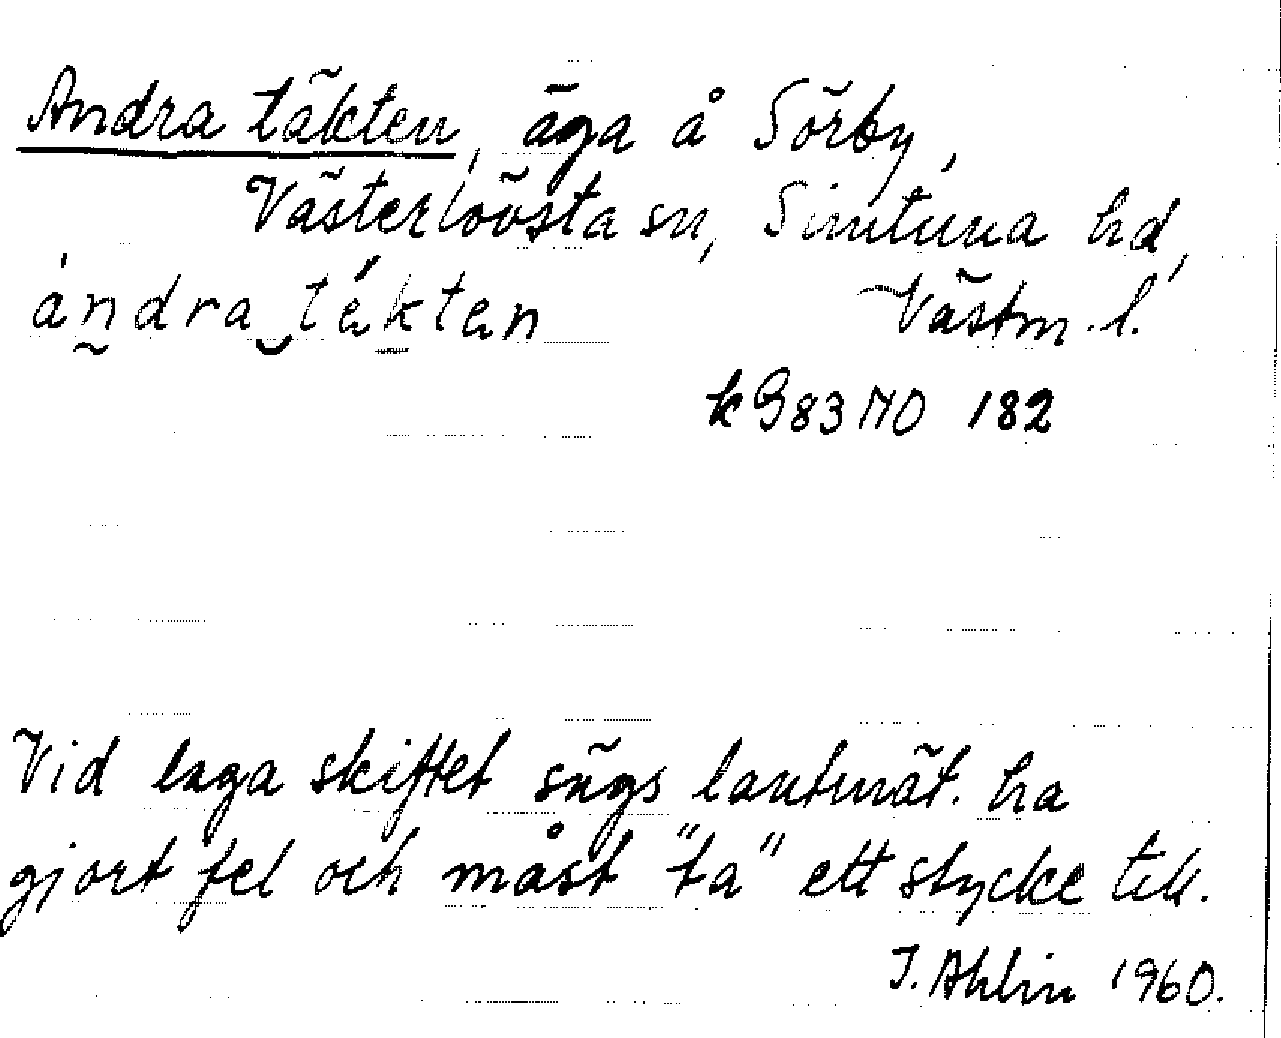 Andra täkten, äga å Sörby,
Västerlövsta sn, Simtuna hd,
andra täktan Västm. l.
k G83 NO 182
Vid laga skiftet sägs lantmät. ha
gjort fel och måst "ta" ett stycke till.
I. Ahlin 1960.